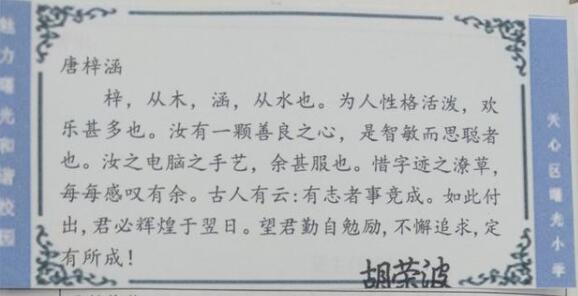 唐梓涵
梓，从木，涵，从水也。为人性格活泼，欢
乐甚多也。汝有一颗善良之心，是智敏而思聪者
也。汝之电脑之手艺，余甚服也。惜字迹之潦草，
每每感叹有余。古人有云:有志者事竟成。如此付
出，君必辉煌于翌日。望君勤自勉励，不懈追求，定
有所成！
胡荣波
魅力曙光和谐校园
天心区曙光小学